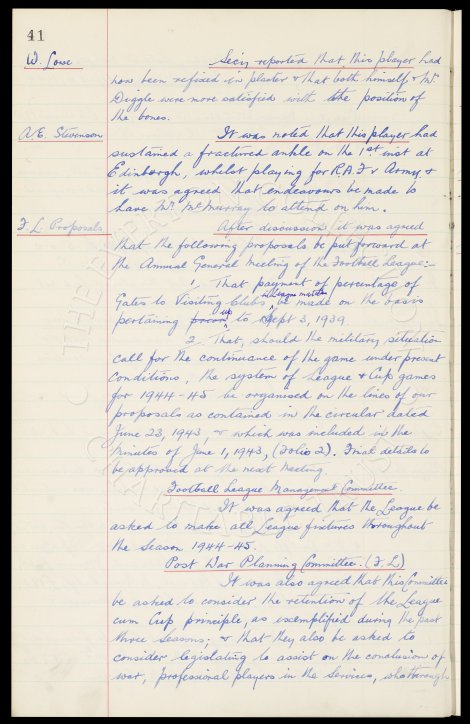 41
W. Lowe
Secy reported that this player had
now been refixed in plaster & that both himself & Mr
Diggle were more satisfied with the position of
the bones.
A.E. Stevenson
It was noted that this player had
sustained a fractured ankle on the 1st inst at
Edinborgh, whilst playing for R.A.F. v Army, &
it was agreed that endeavours be made to
have Mr. McMurray to attend on him.
F L Proposals
After discussion, it was agreed
that the following proposals be put forward at
the Annual General Meeting of the Football League:-
1. That payment of percentage of
Gates to Visiting Clubs, in League matches be made on the basis
pertaining up to Sept 3, 1939.
2. That, should the military situation
call for the continuance of the game under present
conditions, the system of League & Cup games
for 1944-45 be organised on the lines of our
proposals as contained in the circular dated
June 23, 1943, & which was included in the
Minutes of June 1, 1943, (Folio 2). Final details to
be approved at the next meeting.
Football League Management Committee
It was agreed that the League be
asked to make all League fixtures throughout
the Season 1944-45.
Post War Planning Committee. (F.L)
It was also agreed that this Committee
be asked to consider the retention of the League
cum Cup principle, as exemplified during the past
three Seasons; & that they also be asked to
consider legislating to assist on the conclusion of
war, professional players in the Services, who through